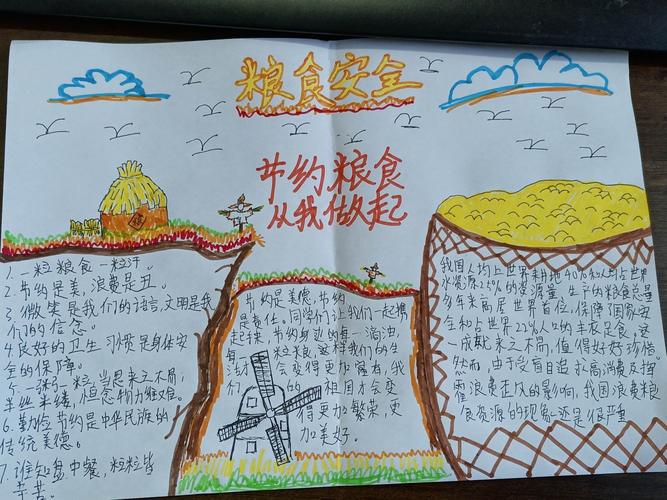 粮食安全
节约粮食
从我做起
1. 一粒粮食一粒汗。
2. 节约是美,浪费是丑。
3 微笑是我们的语言,文明是我
们的信念。
4.良好的卫生习惯是身体安
全的保障。
5 一张一粒,当思来之不易,
半丝半缕,恒念物力维艰。
6. 勤俭节约是中华民族的
传统美德。
7. 谁知盘中餐,粒粒皆
辛苦。
节约是美德,节约
是责任,同学们让我们一起携
起手来,节约身边的每一滴油
每一 粒粮,这样我们的生
活才 会变得更加富有,我
们 的 祖国才会变
得更加繁荣,更
加美好。
我国人均占世界耕地40%和人均占世界
水资源25%的资源量 生产的粮食总量
多年来高居世界首位,保障了国家安
全和占世界22%人口的丰衣足食,这
一成就来之不易,值得好好珍惜。
然而,由于受盲目追求高消费及挥
霍浪费歪风的影响,我国浪费粮
食资源的现象还是很严重